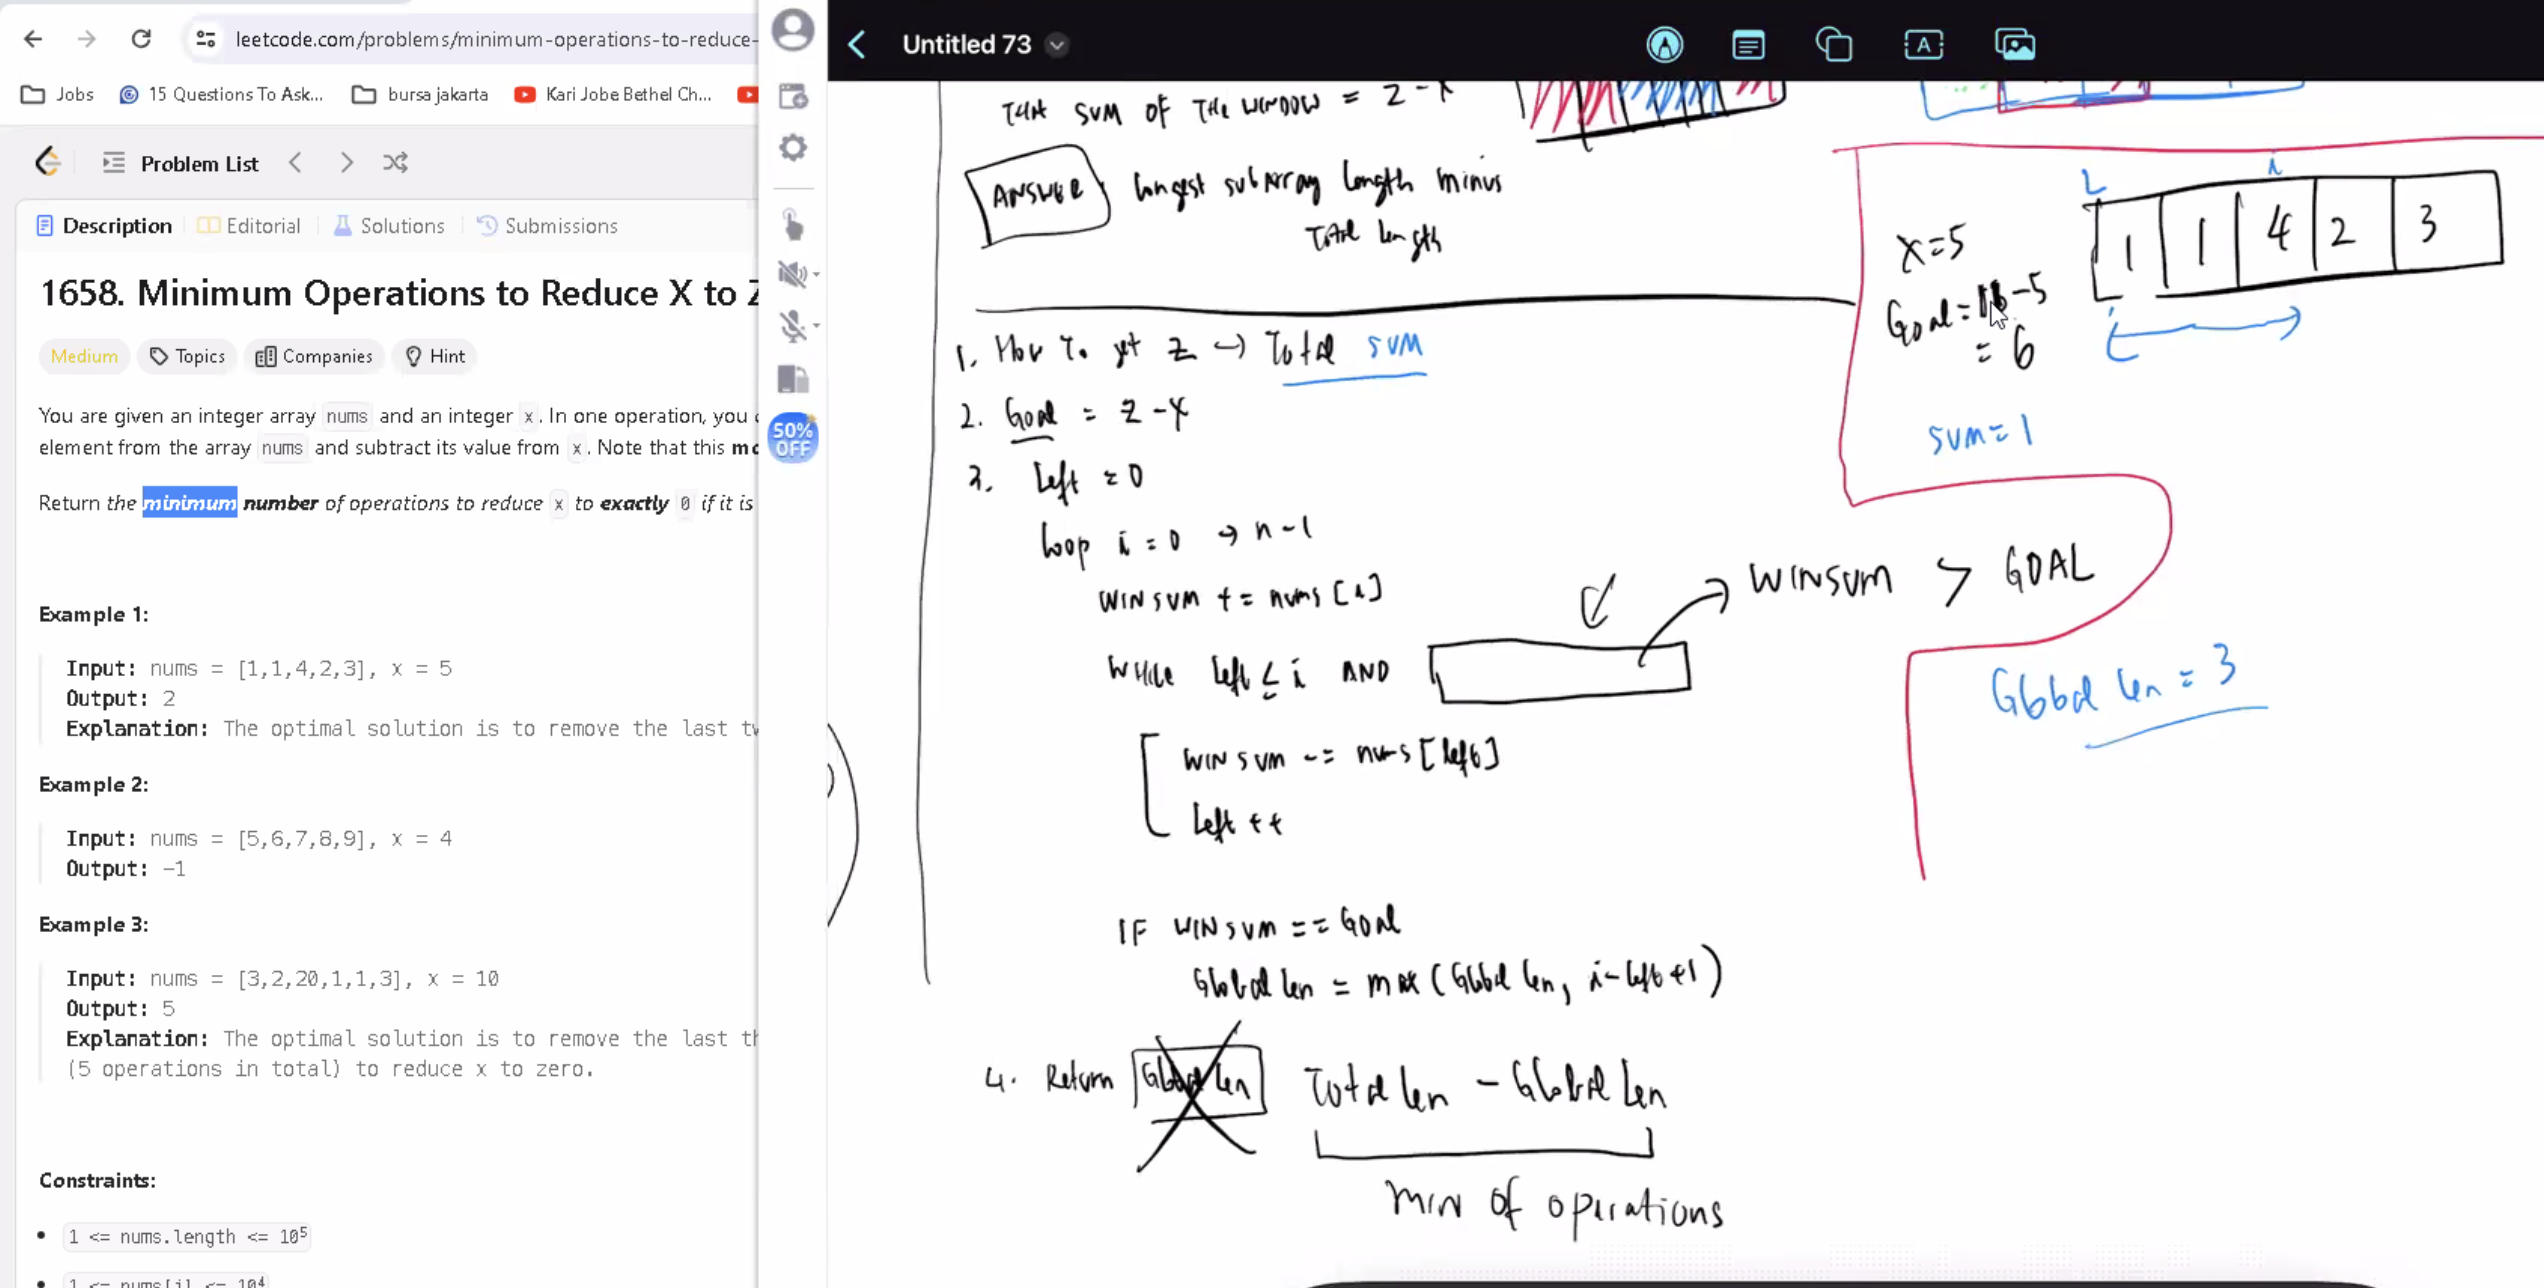 leetcode.com/problems/minimum-operations-to-reduce-
Jobs
15 Questions To Ask...
bursa jakarta
Kari Jobe Bethel Ch...
Problem List
Description
Editorial
Solutions
Submissions
1658. Minimum Operations to Reduce X to Z
Medium
Topics
Companies
Hint
You are given an integer array nums and an integer x. In one operation, you
element from the array nums and subtract its value from x. Note that this mo
Return the minimum number of operations to reduce x to exactly 0 if it is
Example 1:
Input: nums = [1,1,4,2,3], x = 5
Output: 2
Explanation: The optimal solution is to remove the last tw
Example 2:
Input: nums = [5,6,7,8,9], x = 4
Output: -1
Example 3:
Input: nums = [3,2,20,1,1,3], x = 10
Output: 5
Explanation: The optimal solution is to remove the last th
(5 operations in total) to reduce x to zero.
Constraints:
1 <= nums.length <= 10⁵
1 <= nums[i] <= 10⁴
50% OFF
Untitled 73
THAT SUM OF THE WINDOW = Z - X
ANSWER
longest subarray length minus
Total length
1. How to get Z → Total sum
2. Goal = Z - X
3. left = 0
loop i = 0 → n-1
WINSUM += nums[i]
WHILE left ≤ i AND
WINSUM > GOAL
[ WINSUM -= nums[left]
left ++
IF WINSUM == GOAL
Global len = max(Global len, i-left+1)
4. Return Global len Total len - Global len
MIN OF operations
L
i
1 1 4 2 3
X=5
Goal = 11-5
= 6
SUM = 1
Global len = 3